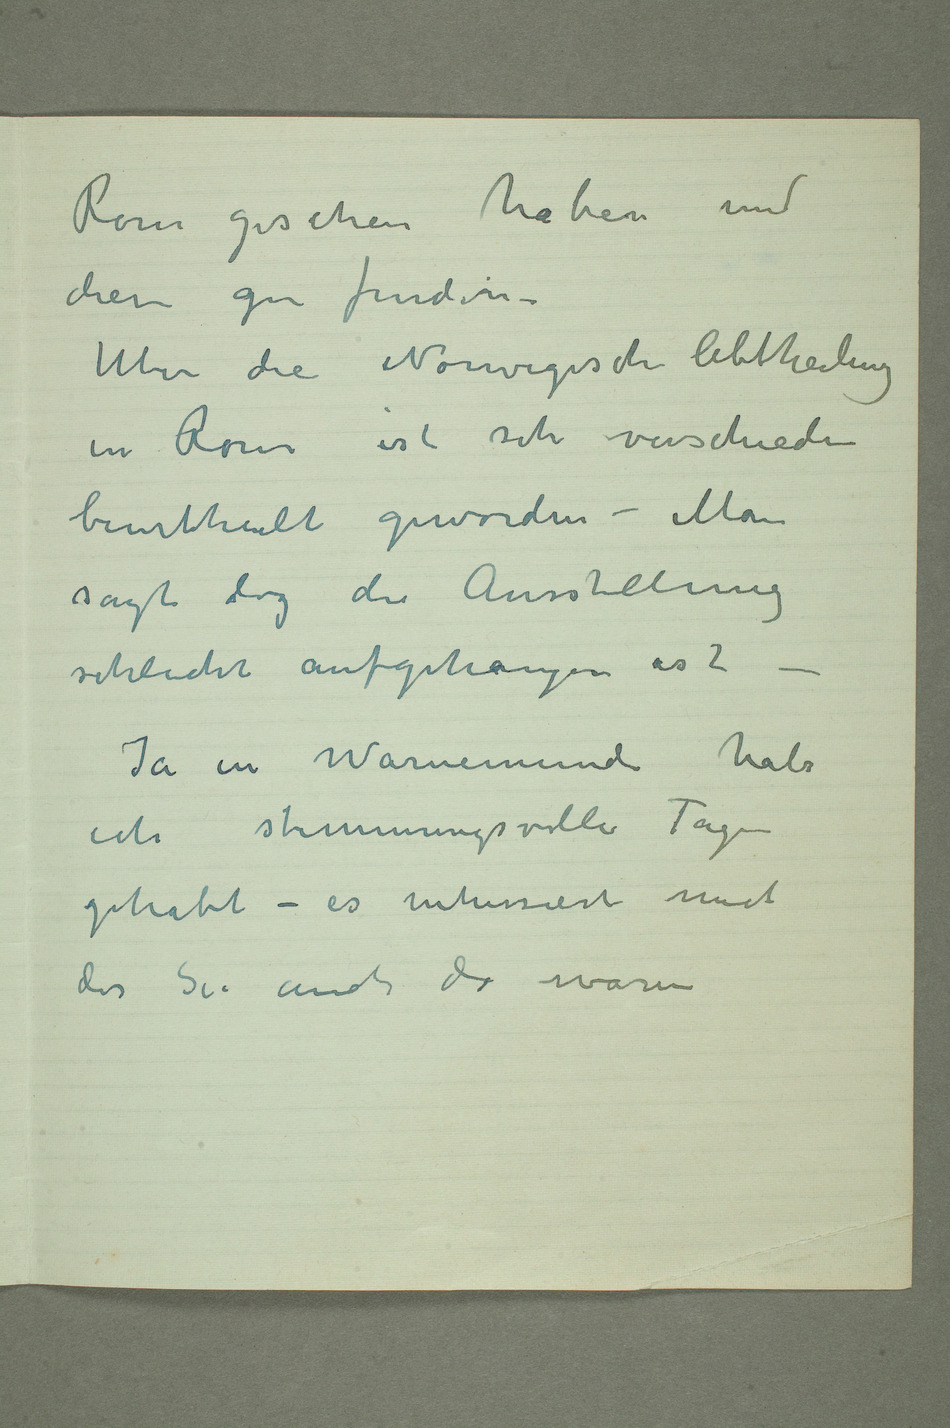 Rom gesehen haben und
diese gu finden –
Uber die Norwegische Abtheilung
in Rom ist sehr verschieden
beurtheilt geworden – Man
sagt das die Ausstellung
schlecht aufgehangen ist –
Ja in Warnemünde habe
ich stimmungsvolle Tage
gehabt – es interessiert mich
das Sie auch da waren